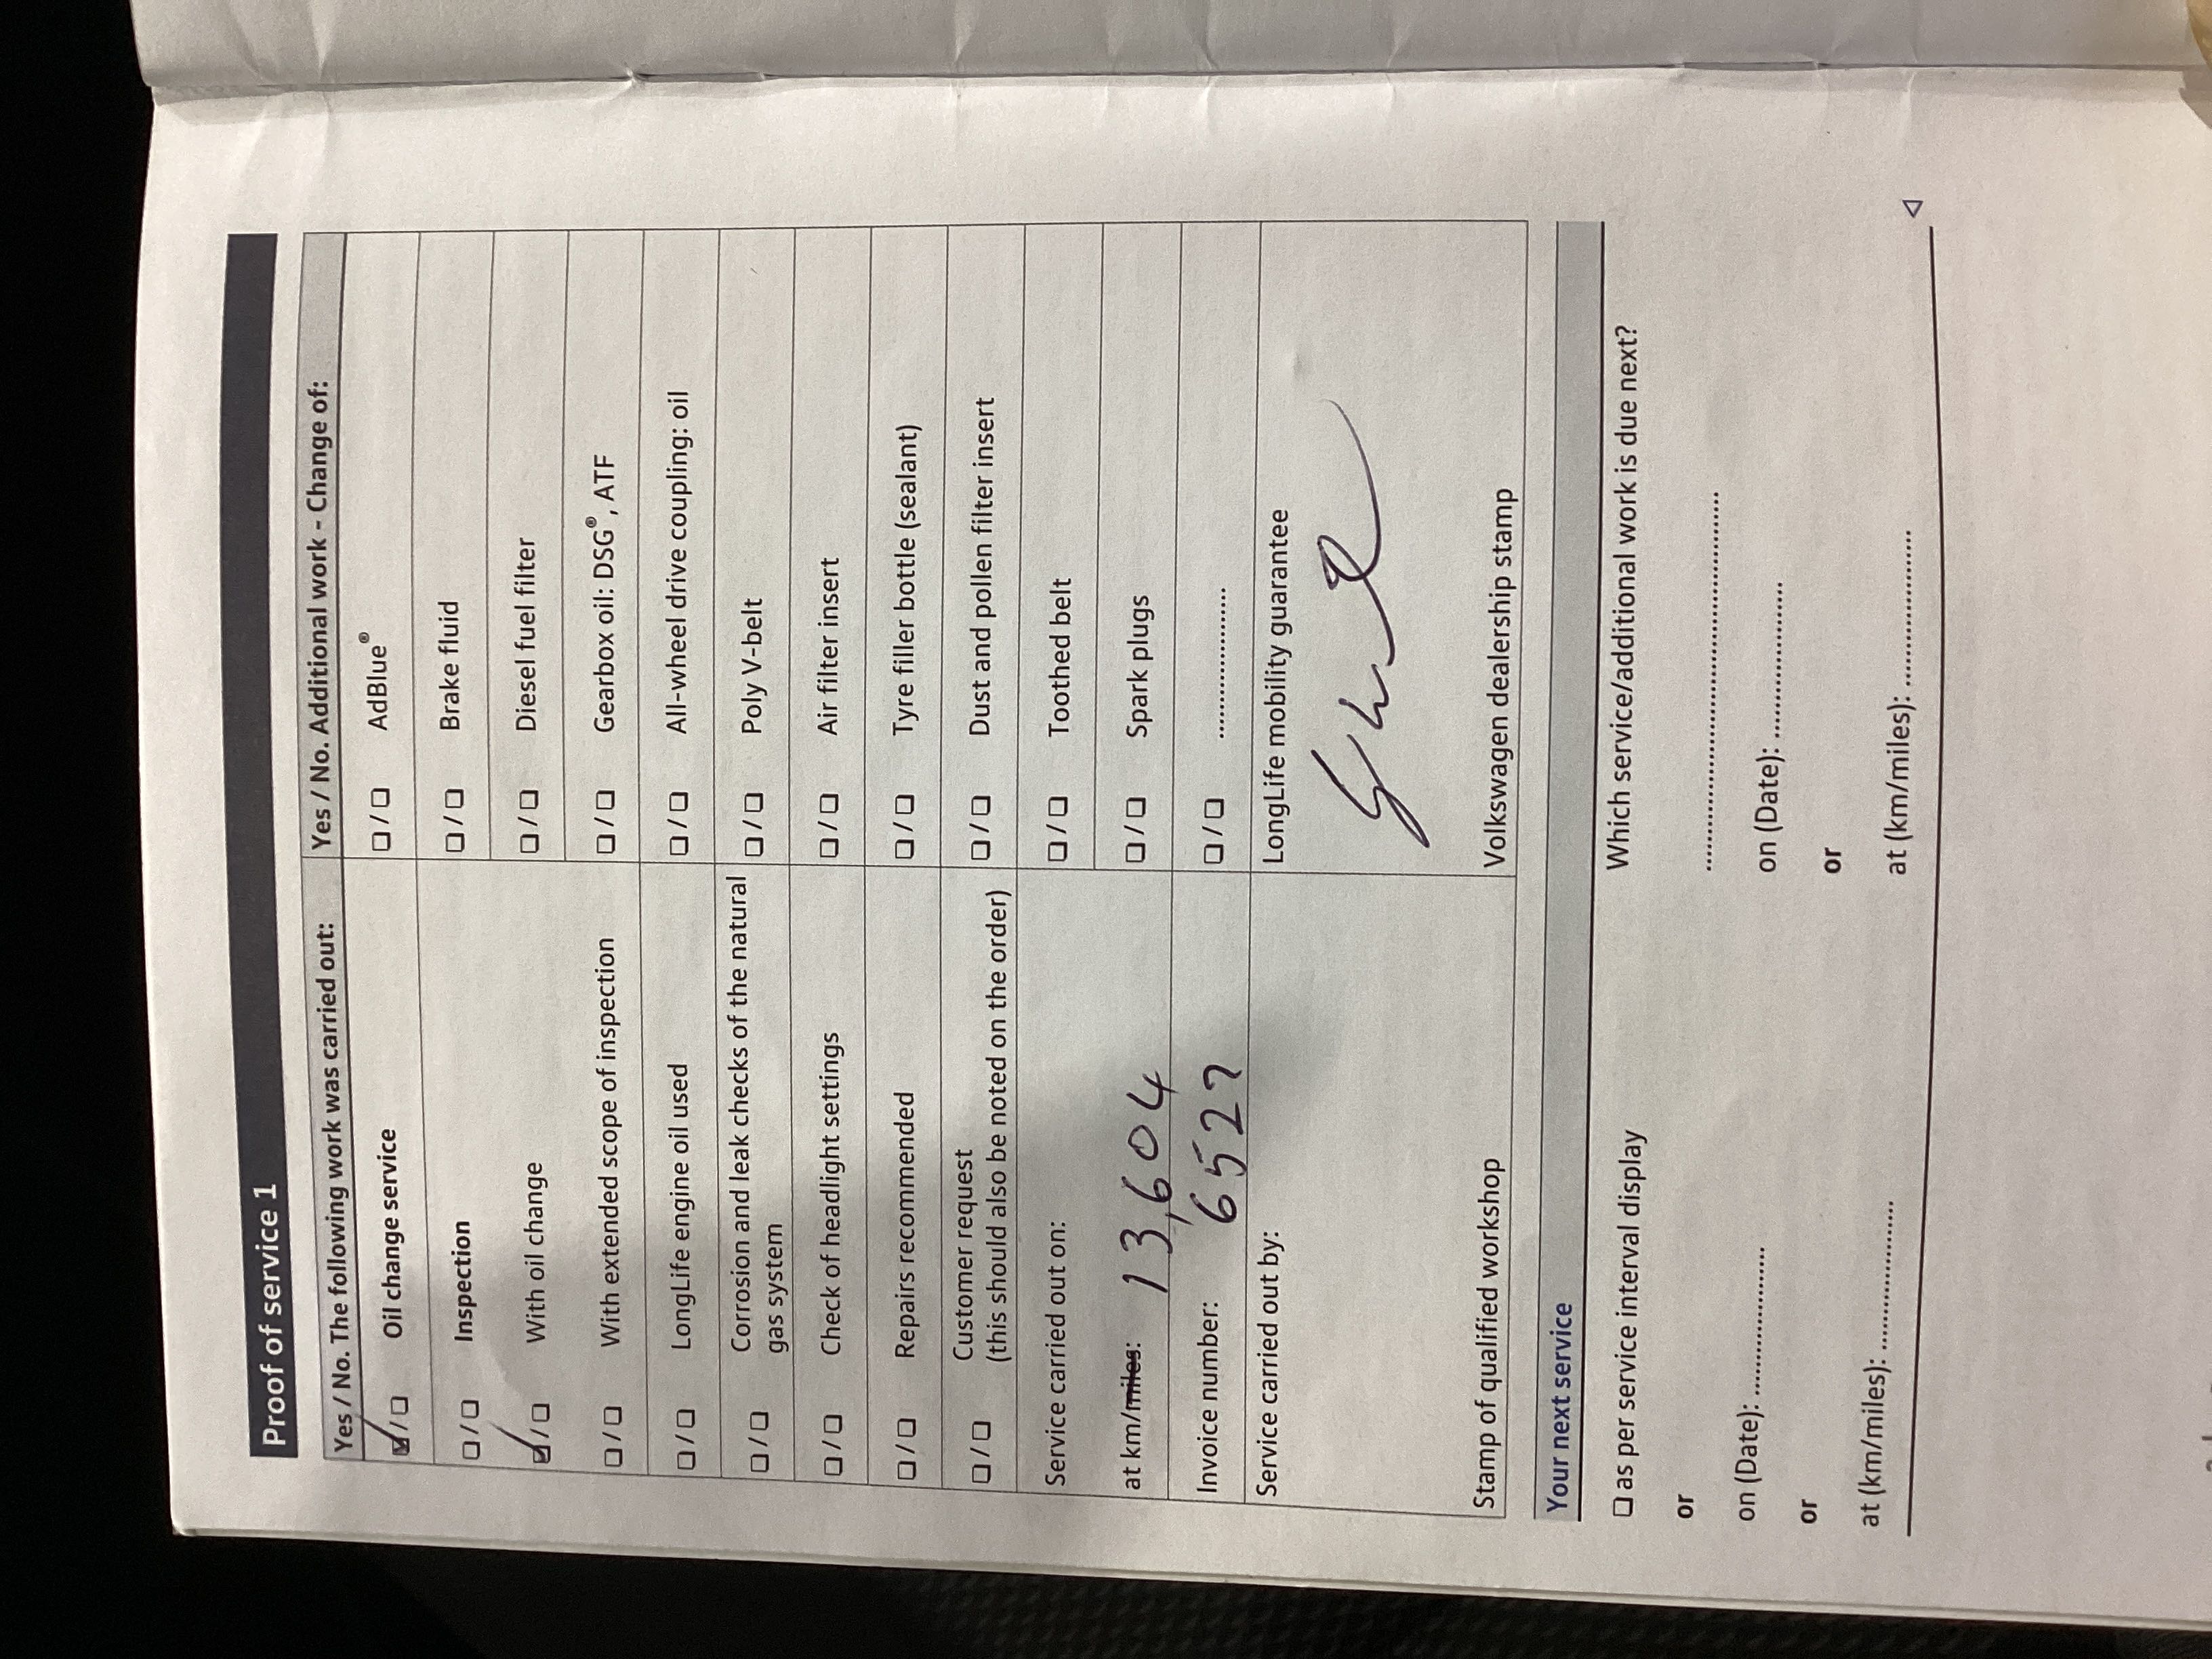 Proof of service 1
Yes / No. The following work was carried out:
Yes / No. Additional work - Change of:
☑ / ☐ Oil change service
☐ / ☐ AdBlue®
☐ / ☐ Inspection
☐ / ☐ Brake fluid
☑ / ☐ With oil change
☐ / ☐ Diesel fuel filter
☐ / ☐ With extended scope of inspection
☐ / ☐ Gearbox oil: DSG®, ATF
☐ / ☐ LongLife engine oil used
☐ / ☐ All-wheel drive coupling: oil
☐ / ☐ Corrosion and leak checks of the natural
gas system
☐ / ☐ Poly V-belt
☐ / ☐ Check of headlight settings
☐ / ☐ Air filter insert
☐ / ☐ Repairs recommended
☐ / ☐ Tyre filler bottle (sealant)
☐ / ☐ Customer request
(this should also be noted on the order)
☐ / ☐ Dust and pollen filter insert
Service carried out on:
☐ / ☐ Toothed belt
at km/miles: 13,604
☐ / ☐ Spark plugs
Invoice number: 6527
☐ / ☐ ....................
Service carried out by:
LongLife mobility guarantee
Stamp of qualified workshop
Volkswagen dealership stamp
Your next service
☐ as per service interval display
Which service/additional work is due next?
or
..................................................
on (Date): ....................
on (Date): ....................
or
or
at (km/miles): ....................
at (km/miles): ....................